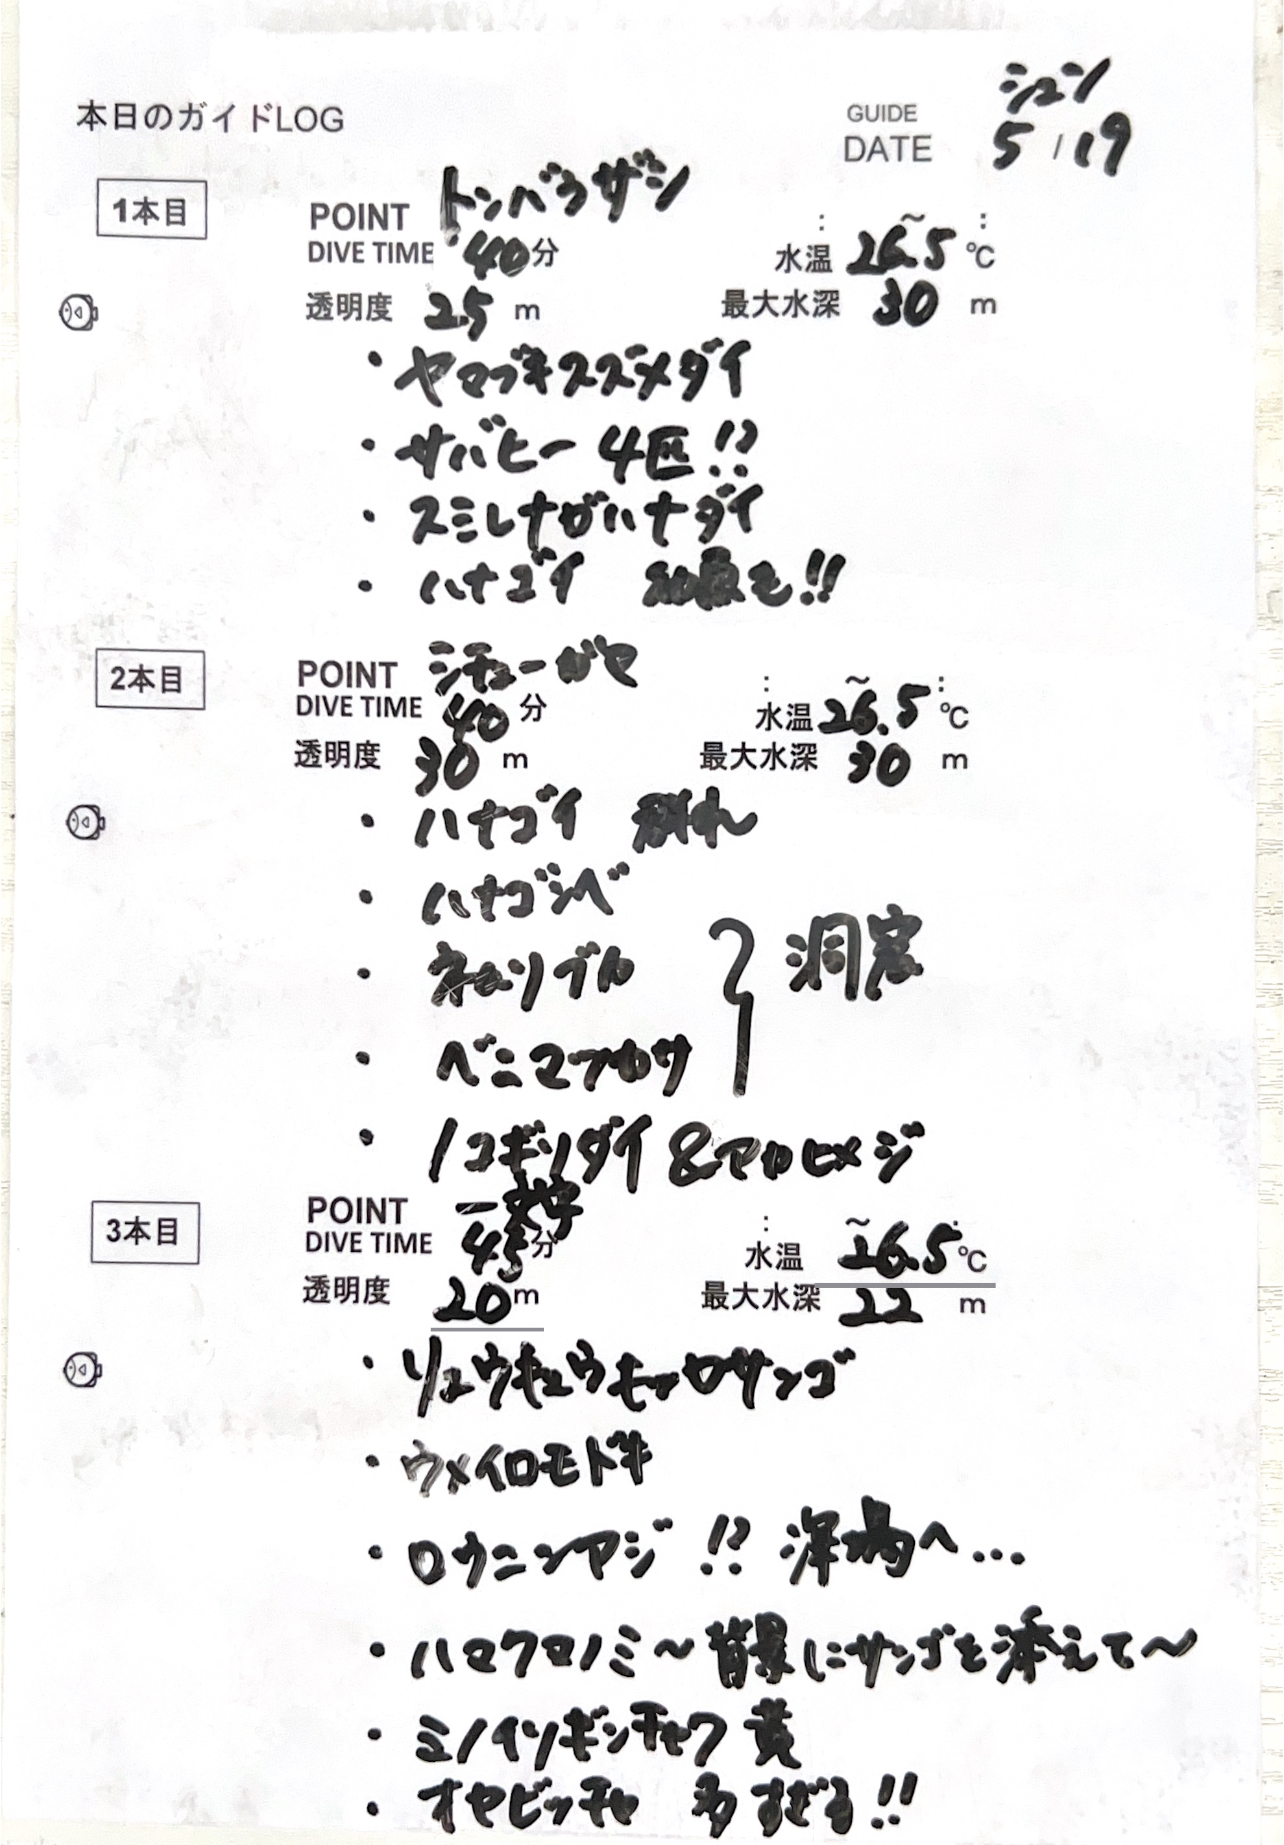 本日のガイドLOG
GUIDE シュン
DATE 5/19
1本目
POINT トンバラザシ
: ~ :
DIVE TIME 40分
水温 26.5℃
透明度 25 m
最大水深 30 m
・ヤマブキスズメダイ
・サバヒー 4匹!?
・スミレナガハナダイ
・ハナゴイ も!!
2本目
POINT シチューガマ
: ~ :
DIVE TIME 40分
水温 26.5℃
透明度 30 m
最大水深 30 m
・ハナゴイ 群れ
・ハナゴンベ
・ネムリブカ
・ベニマツカサ
洞窟
・ノコギリダイ&アカヒメジ
3本目
POINT 一文字
: ~ :
DIVE TIME 45分
水温 26.5℃
透明度 20m
最大水深 22 m
・リュウキュウキッカサンゴ
・ウメイロモドキ
・ロウニンアジ !? 深場へ...
・ハマクマノミ~背景にサンゴを添えて~
・ミノイソギンチャク 黄
・オヤビッチャ 多すぎる!!